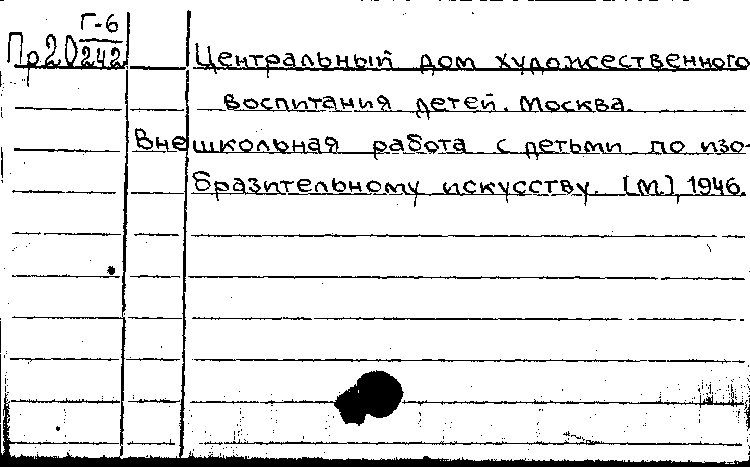 Г-6
Пр20 242 Центральный дом художественного
воспитания детей. Москва.
Внешкольная работа с детьми по изо-
бразительному искусству. [М.], 1946.